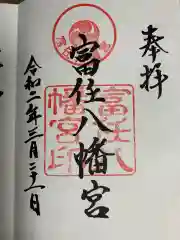 奉拝
富住八幡宮
富住八幡宮印
令和二年三月二十一日